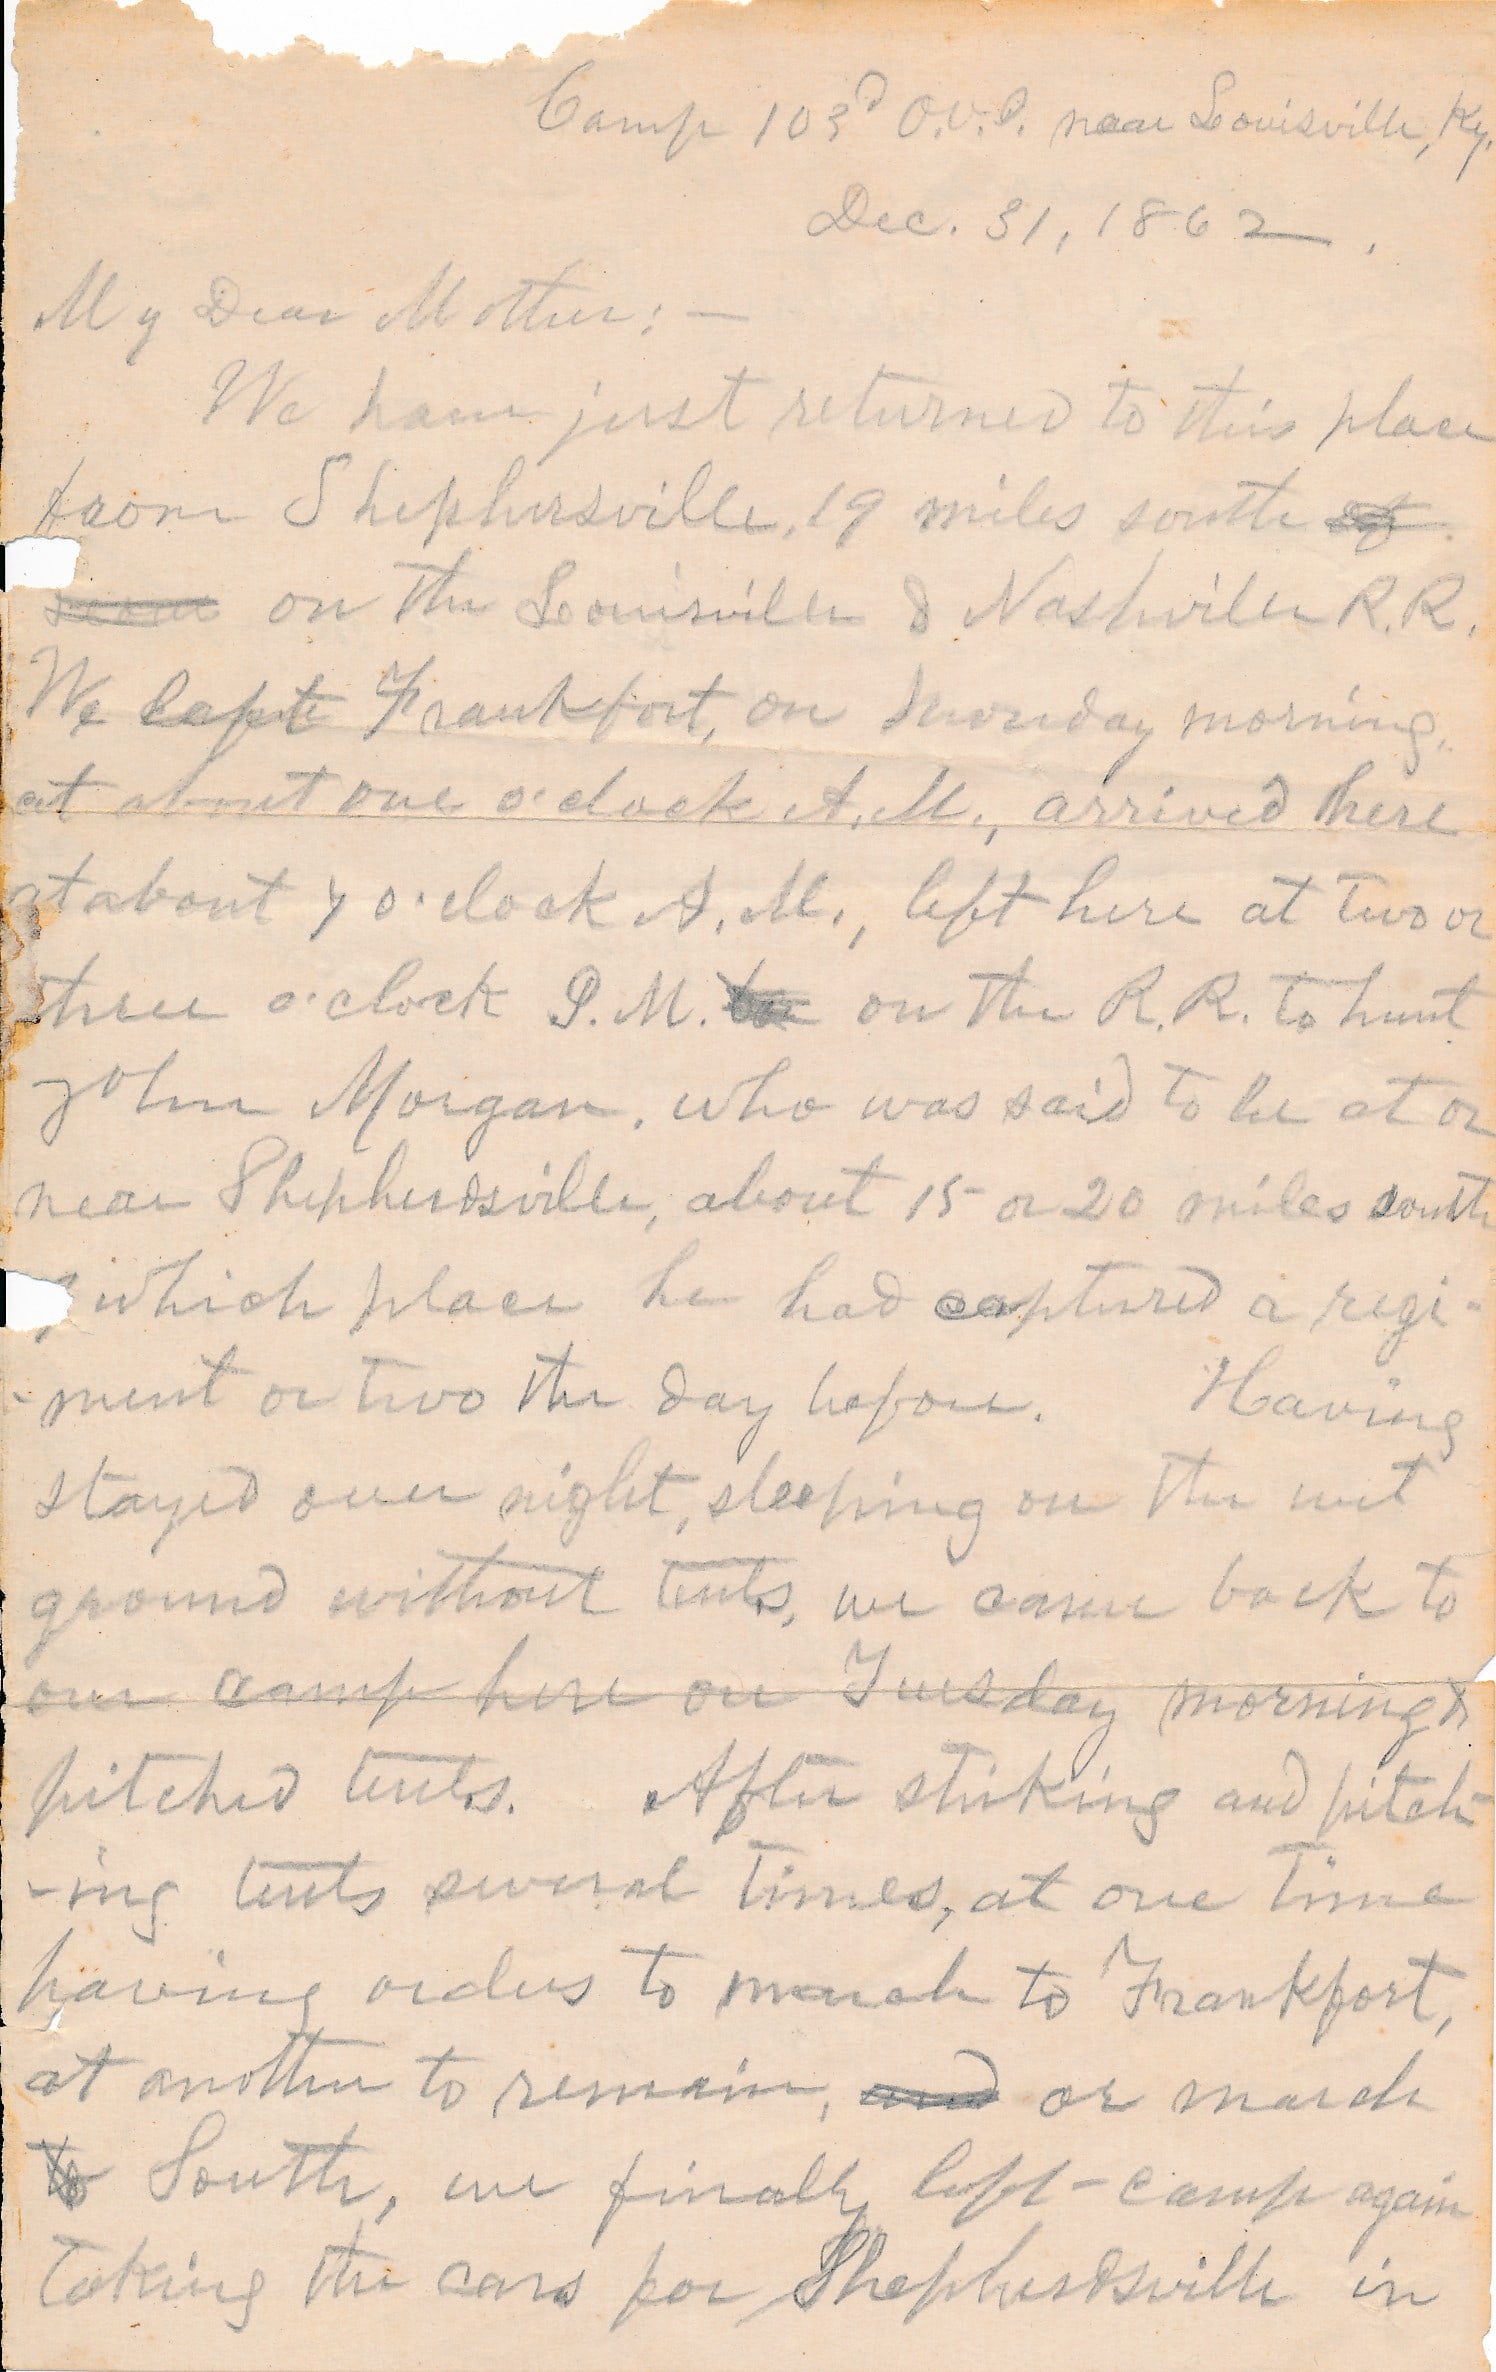 Camp 103d O.V.I. near Louisville, Ky.
Dec. 31, 1862.
My Dear Mother:—
We have just returned to this place
from Shephersville, 19 miles south of
on the Louisville & Nashville R.R.
We left Frankfort, on Monday morning,
at about one o'clock A.M., arrived here
at about 7 o'clock A.M., left here at two or
three o'clock P.M. on the R.R. to hunt
John Morgan, who was said to be at or
near Shepherdsville, about 15 or 20 miles south
which place he had captured a regi-
-ment or two the day before. Having
stayed over night, sleeping on the wet
ground without tents, we came back to
our camp here on Tuesday morning &
pitched tents. After striking and pitch-
-ing tents several times, at one time
having orders to march to Frankfort,
at another to remain, and or march
to South, we finally left camp again
taking the cars for Shepherdsville in